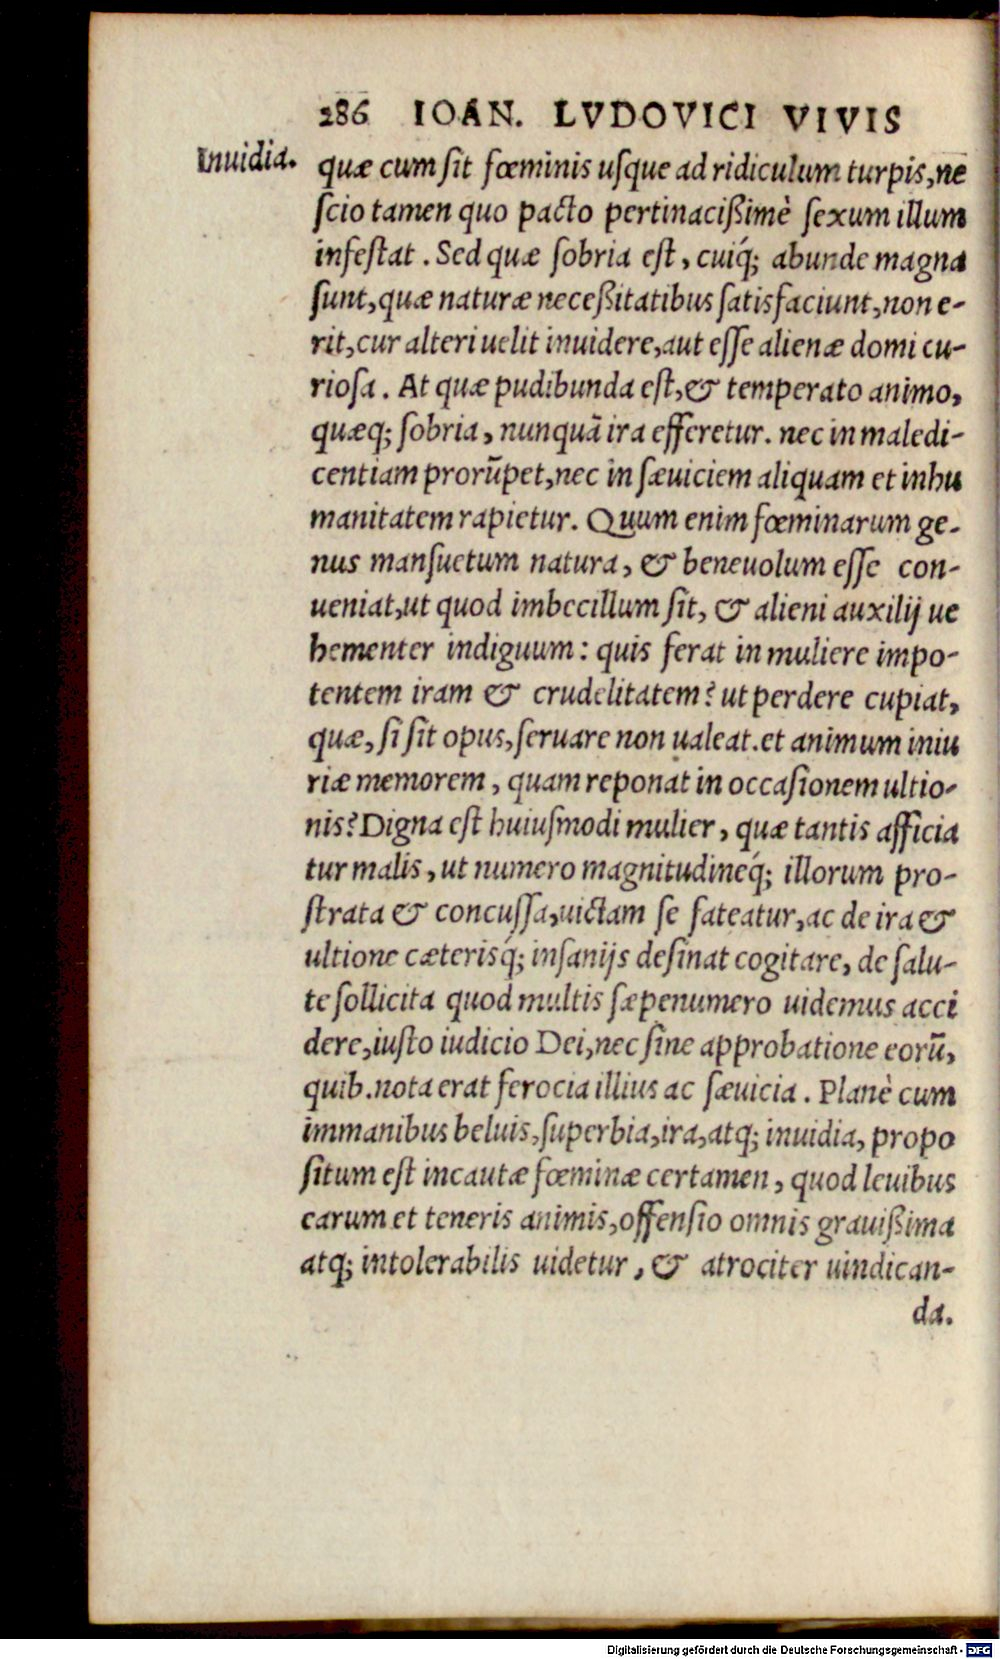 286 IOAN. LVDOVICI VIVIS
Inuidia.
quæ cum ſit fœminis uſque ad ridiculum turpis, ne
ſcio tamen quo pacto pertinacißimè ſexum illum
infeſtat. Sed quæ ſobria eſt, cuiq́; abunde magna
ſunt, quæ naturæ neceßitatibus ſatisfaciunt, non e-
rit, cur alteri uelit inuidere, aut eſſe alienæ domi cu-
rioſa. At quæ pudibunda eſt, & temperato animo,
quæq; ſobria, nunquã ira efferetur. nec in maledi-
centiam prorũpet, nec in ſæuiciem aliquam et inhu
manitatem rapietur. Quum enim fœminarum ge-
nus manſuetum natura, & beneuolum eſſe con-
ueniat, ut quod imbecillum ſit, & alieni auxilij ue
hementer indiguum: quis ferat in muliere impo-
tentem iram & crudelitatem? ut perdere cupiat,
quæ, ſi ſit opus, ſeruare non ualeat. et animum iniu
riæ memorem, quam reponat in occaſionem ultio-
nis? Digna eſt huiuſmodi mulier, quæ tantis afficia
tur malis, ut numero magnitudineq́; illorum pro-
ſtrata & concuſſa, uictam ſe fateatur, ac de ira &
ultione cæterisq́; inſanijs deſinat cogitare, de ſalu-
te ſollicita quod multis ſæpenumero uidemus acci
dere, iuſto iudicio Dei, nec ſine approbatione eorũ,
quib. nota erat ferocia illius ac ſæuicia. Planè cum
immanibus beluis, ſuperbia, ira, atq; inuidia, propo
ſitum eſt incautæ fœminæ certamen, quod leuibus
earum et teneris animis, offenſio omnis grauißima
atq; intolerabilis uidetur, & atrociter uindican-
da.
Digitalisierung gefördert durch die Deutsche Forschungsgemeinschaft - DFG